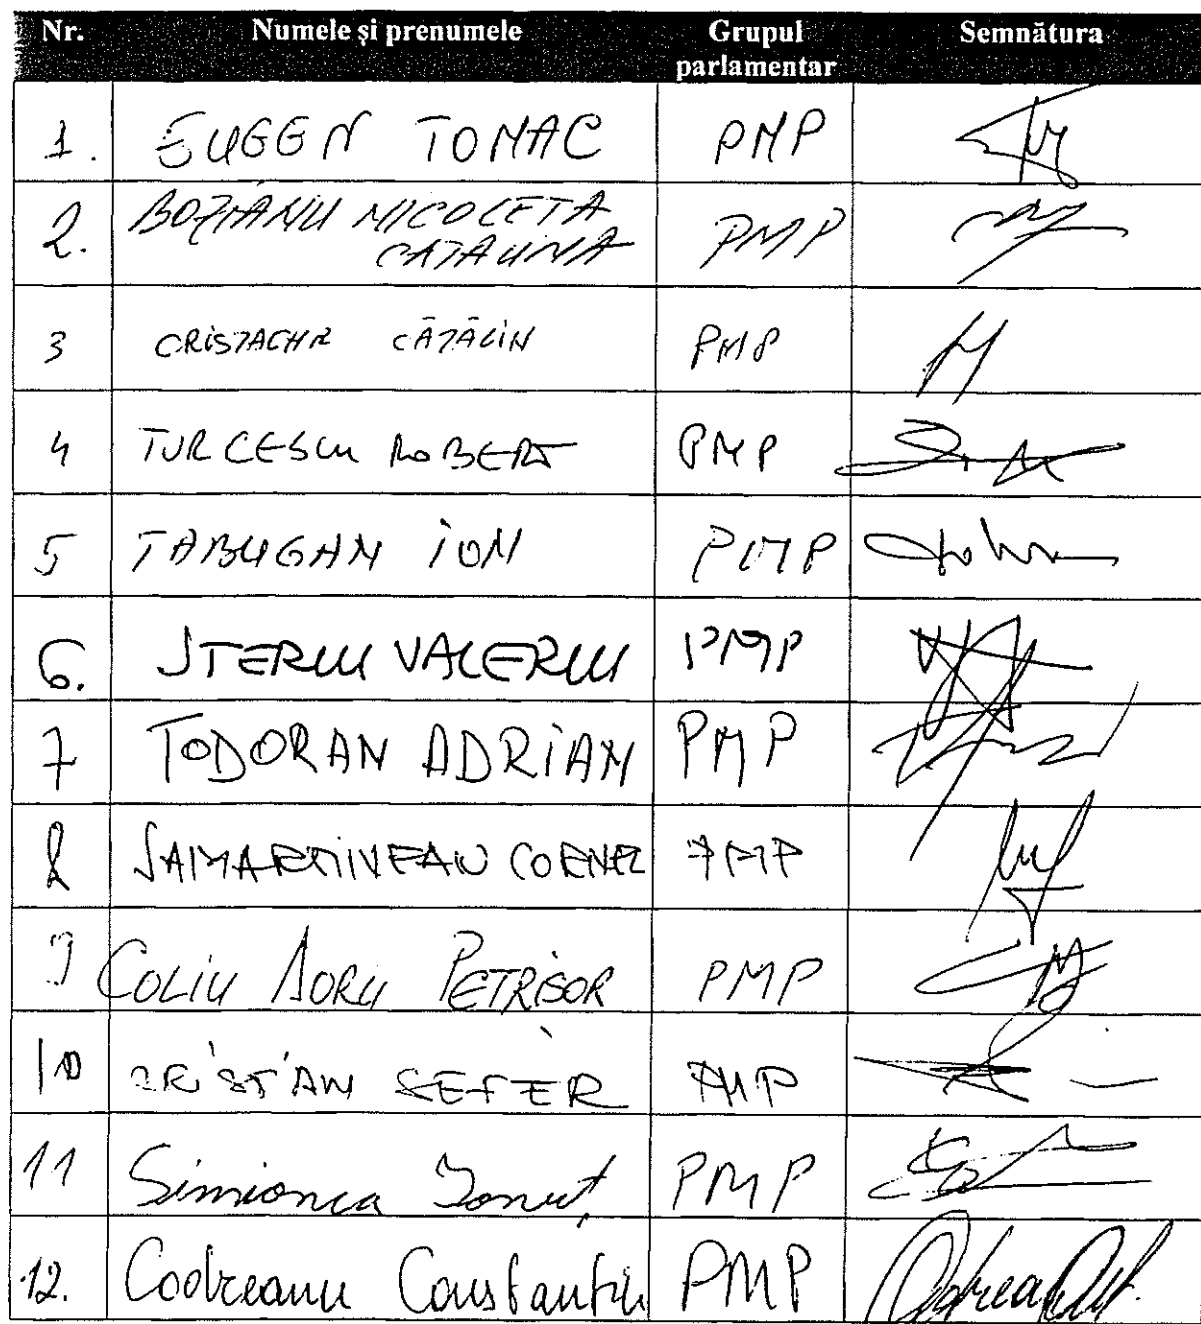 Nr. Numele și prenumele Grupul parlamentar Semnătura
1. EUGEN TOMAC PMP
2. BOZIANU NICOLETA
CATALINA PMP
3 CRISTACHE CĂTĂLIN PMP
4 TURCESCU ROBERT PMP
5 TABUGAN ION PMP
6. STERIU VALERIU PMP
7 TODORAN ADRIAN PMP
8 SAMARTINEAN CORNEL PMP
9 COLIU DORU PETRISOR PMP
10 CRISTIAN SEFER PMP
11 Simionca Ionuț PMP
12. Codreanu Constantin PMP